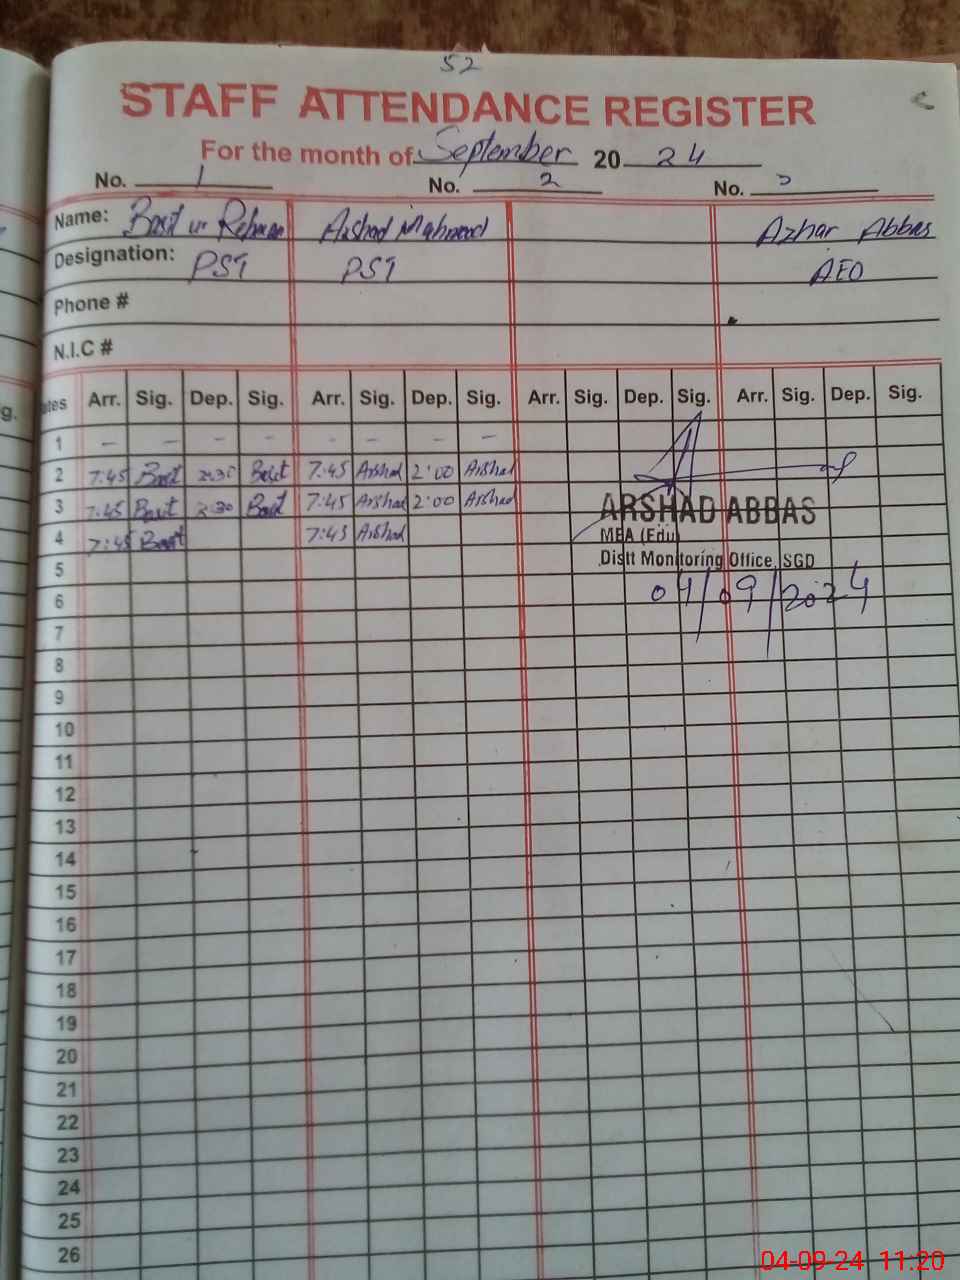 52
STAFF ATTENDANCE REGISTER
For the month of September 20 24
No. 1 No. 2 No.
Name: Basit ur Rehman Arshad Mahmood Azhar Abbas
Designation: PST PST AEO
Phone #
N.I.C #
Arr. Sig. Dep. Sig. Arr. Sig. Dep. Sig. Arr. Sig. Dep. Sig. Arr. Sig. Dep. Sig.
1 - - - - - - - -
2 7:45 Basit 2:30 Basit 7:45 Arshad 2:00 Arshad
3 7:45 Basit 2:30 Basit 7:45 Arshad 2:00 Arshad
ARSHAD ABBAS
4 7:45 Basit 7:45 Arshad
MEA (Edu)
5
Distt Monitoring Office, SGD
6
04/09/2024
7
8
9
10
11
12
13
14
15
16
17
18
19
20
21
22
23
24
25
26
04-09-24 11:20